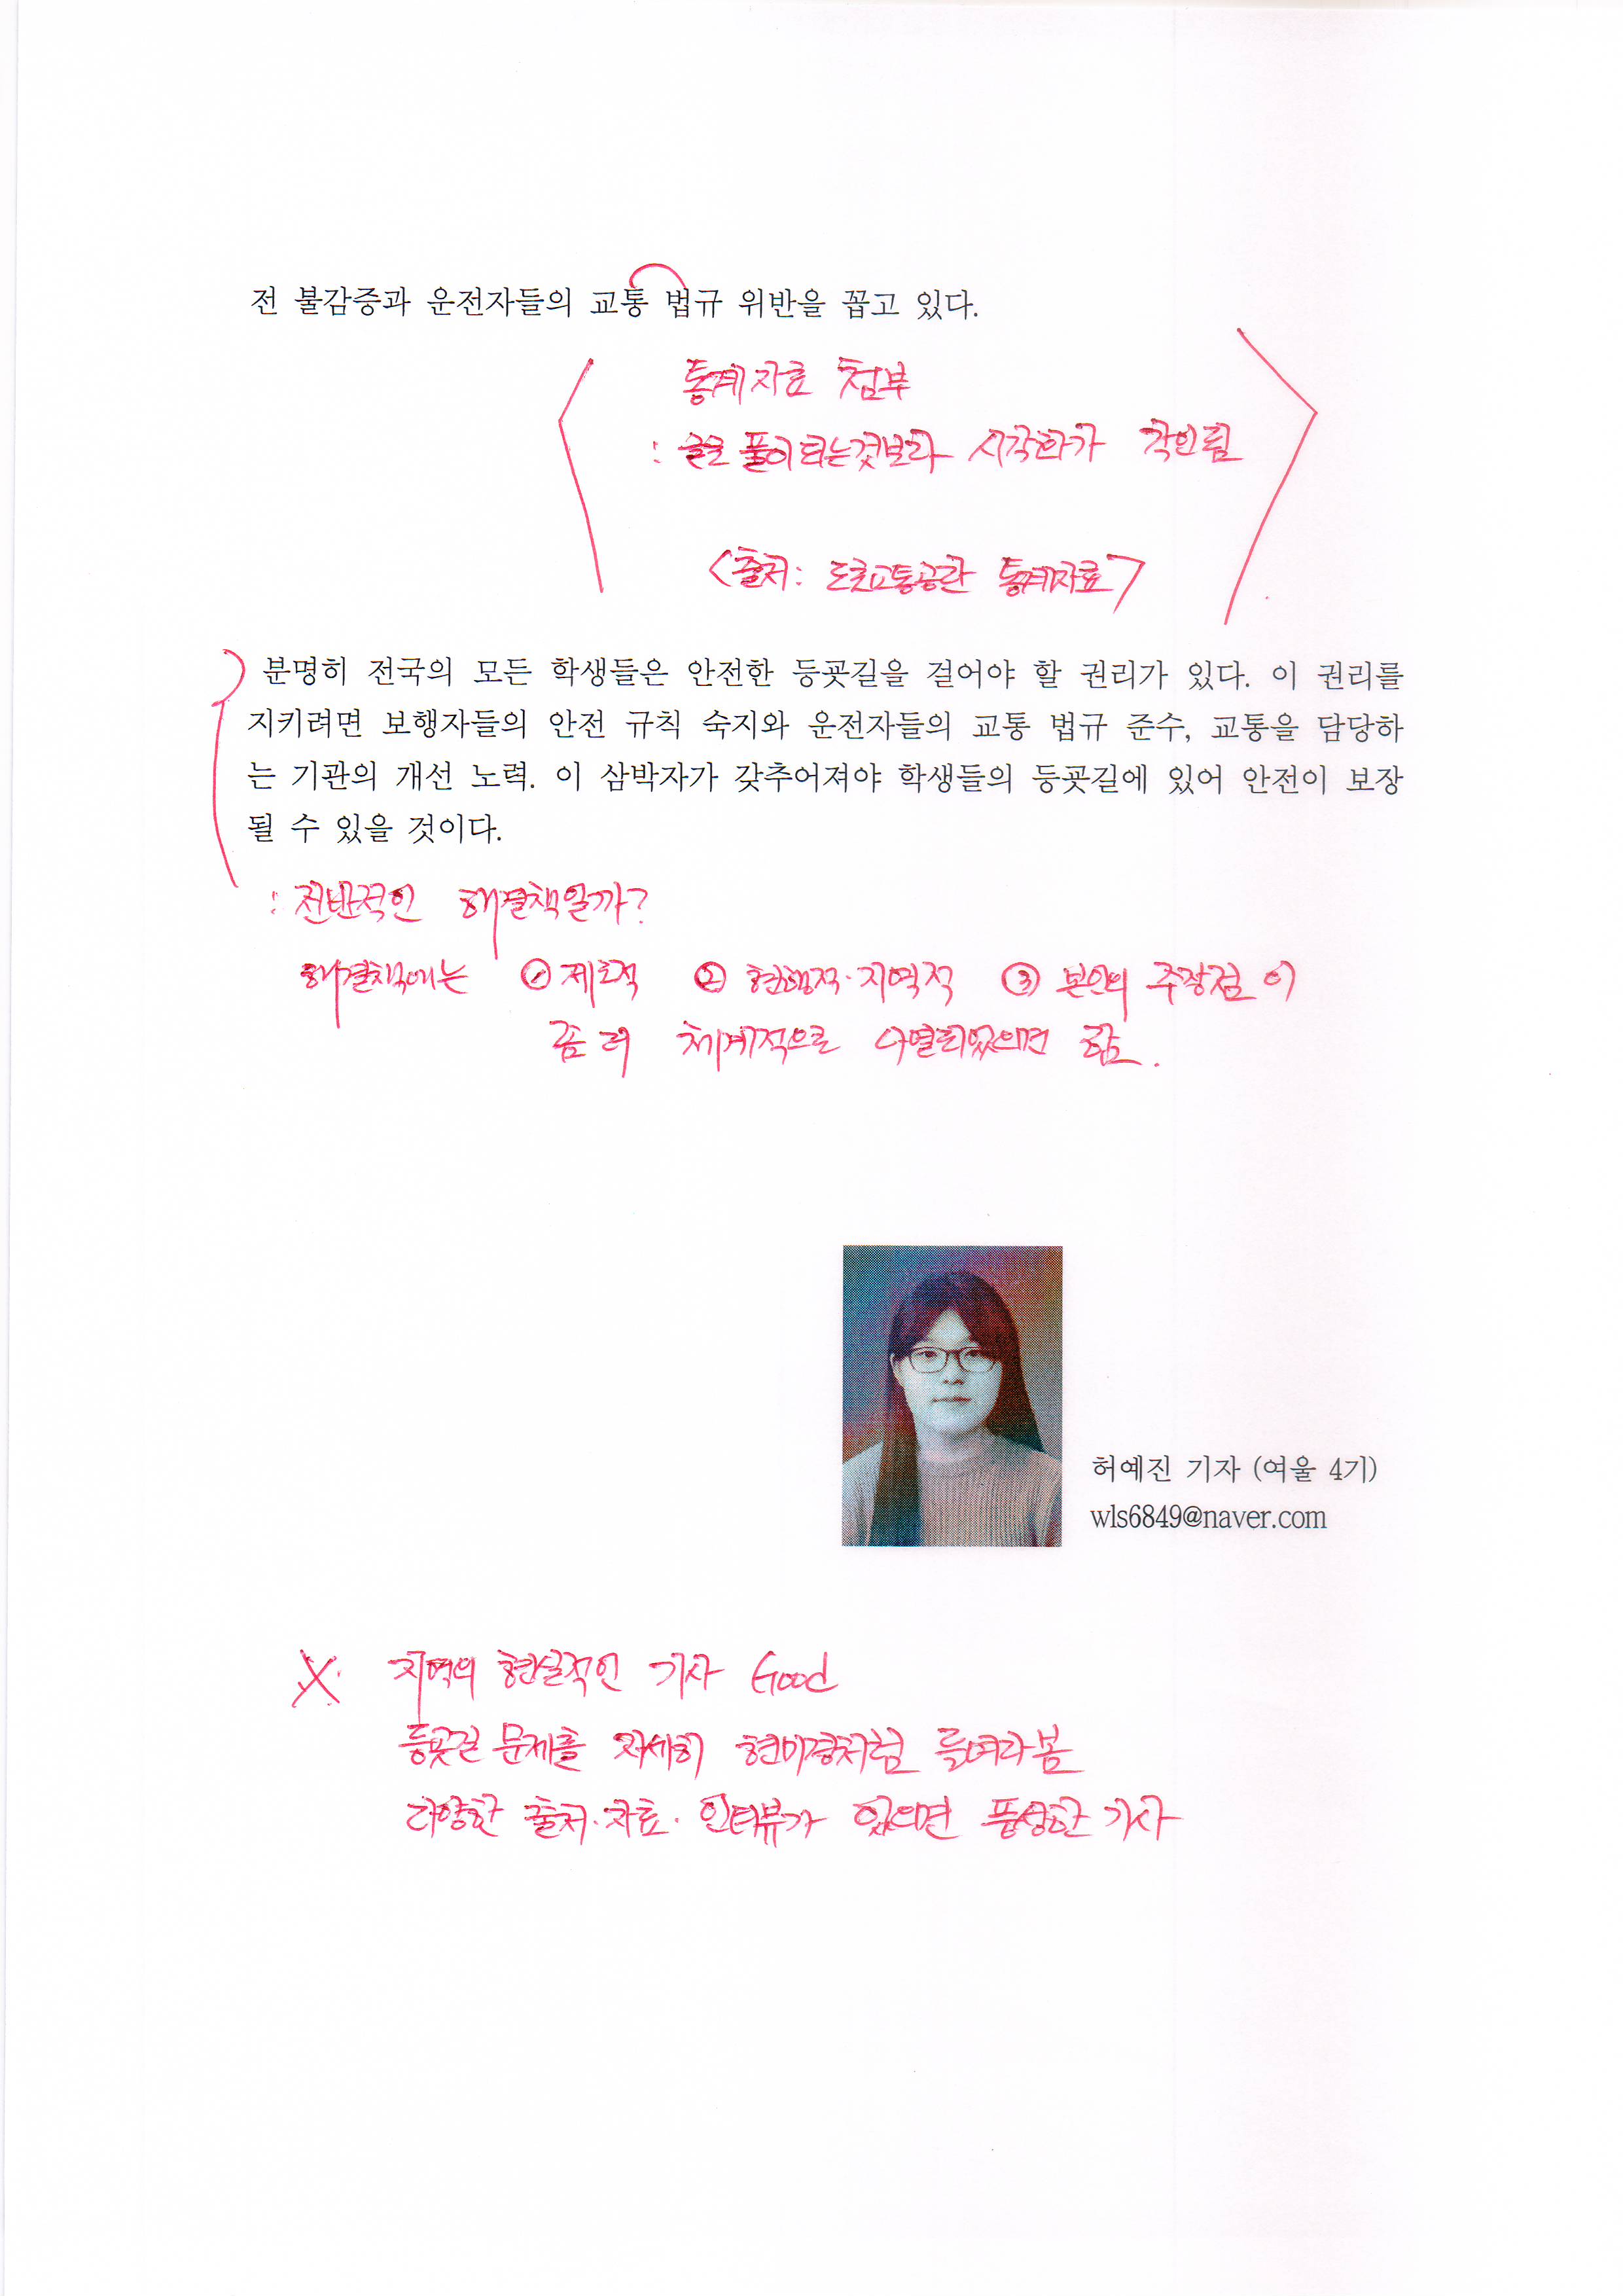 전 불감증과 운전자들의 교통 법규 위반을 꼽고 있다.
통계자료 첨부
: 글로 풀이되는것보다 시각화가 각인됨
<출처: 도로교통공단 통계자료>
분명히 전국의 모든 학생들은 안전한 등굣길을 걸어야 할 권리가 있다. 이 권리를
지키려면 보행자들의 안전 규칙 숙지와 운전자들의 교통 법규 준수, 교통을 담당하
는 기관의 개선 노력. 이 삼박자가 갖추어져야 학생들의 등굣길에 있어 안전이 보장
될 수 있을 것이다.
: 전반적인 해결책일까?
해결책에는 ① 제도적 ② 현행적·지역적 ③ 본인의 주장점이
좀 더 체계적으로 나열되었으면 함.
허예진 기자 (여울 4기)
wls6849@naver.com
※ 지역의 현실적인 기사 Good
등굣길 문제를 자세히 현미경처럼 들여다봄
다양한 출처·자료·인터뷰가 있으면 풍성한 기사